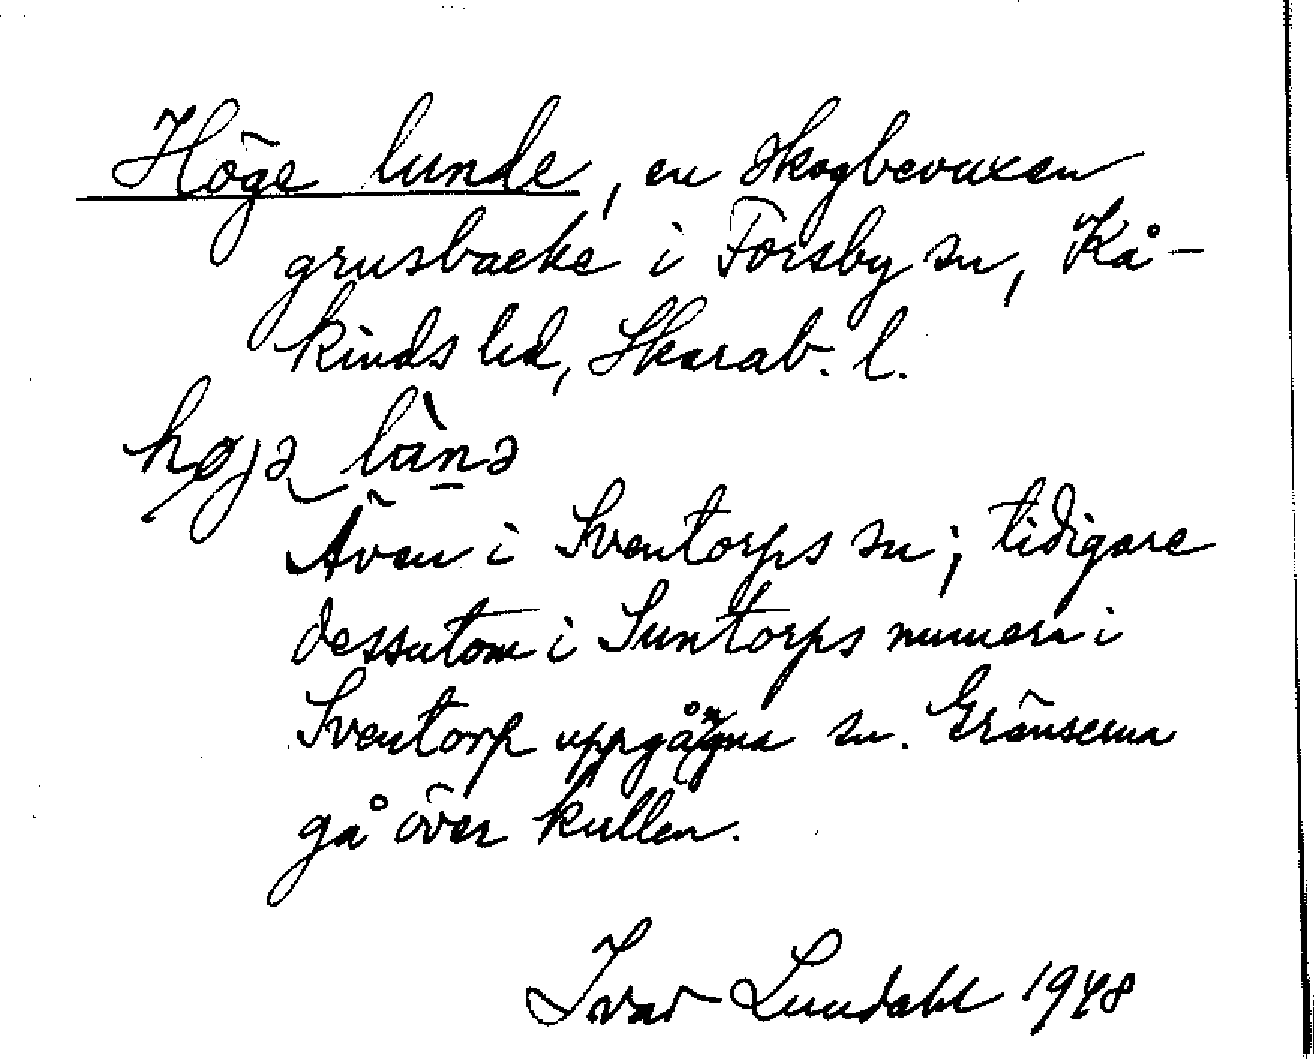 Höge lunde, en skogbevuxen
grusbacke i Forsby sn, Kå-
kinds hd, Skarab. l.
Även i Sventorps sn; tidigare
dessutom i Suntorps numera i
Sventorp uppgångna sn. Gränserna
gå över kullen.
Ivar Lundahl 1948